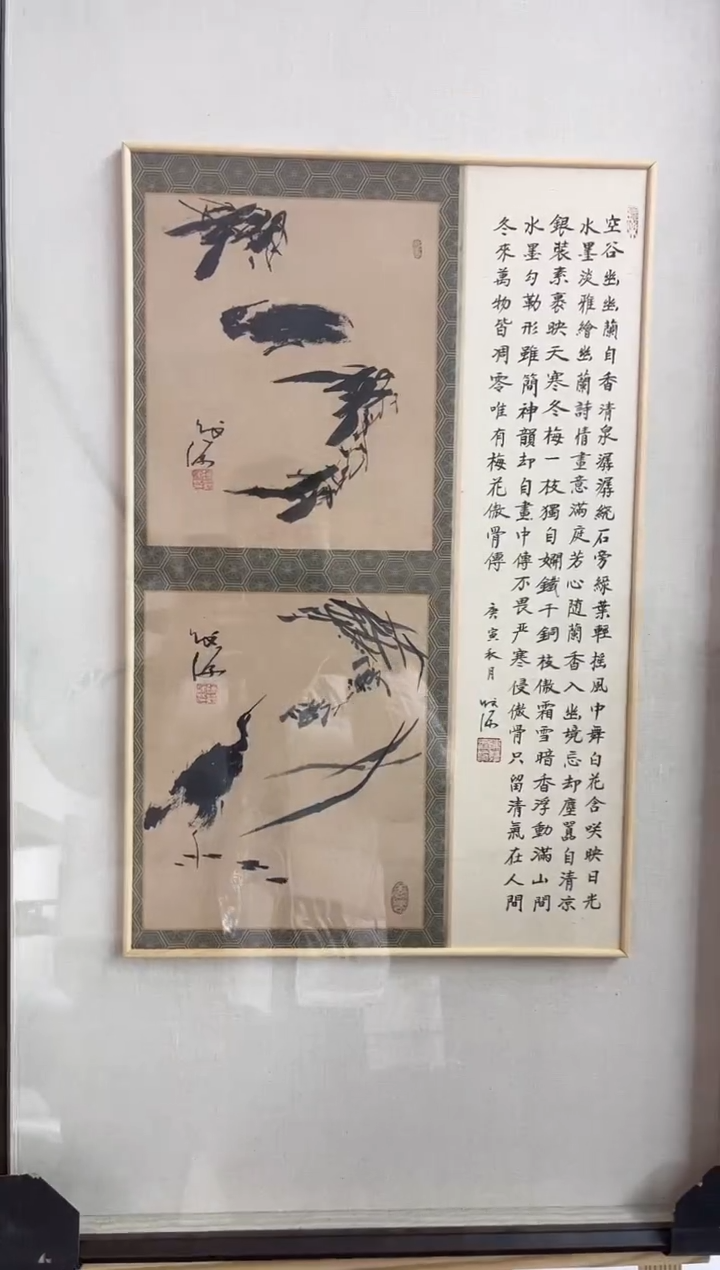 空谷幽幽蘭自香清泉潺潺繞石旁綠葉輕搖風中舞白花含咲映日光
水墨淡雅繪幽蘭詩情畫意滿庭芳心随蘭香入幽境忘却塵囂自清凉
銀裝素裹映天寒冬梅一枝獨自嫻鐵干銅枝傲霜雪暗香浮動滿山間
水墨勾勒形雖簡神韻却自畫中傳不畏严寒侵傲骨只留清氣在人間
冬來萬物皆凋零唯有梅花傲骨傳
庚寅秋月